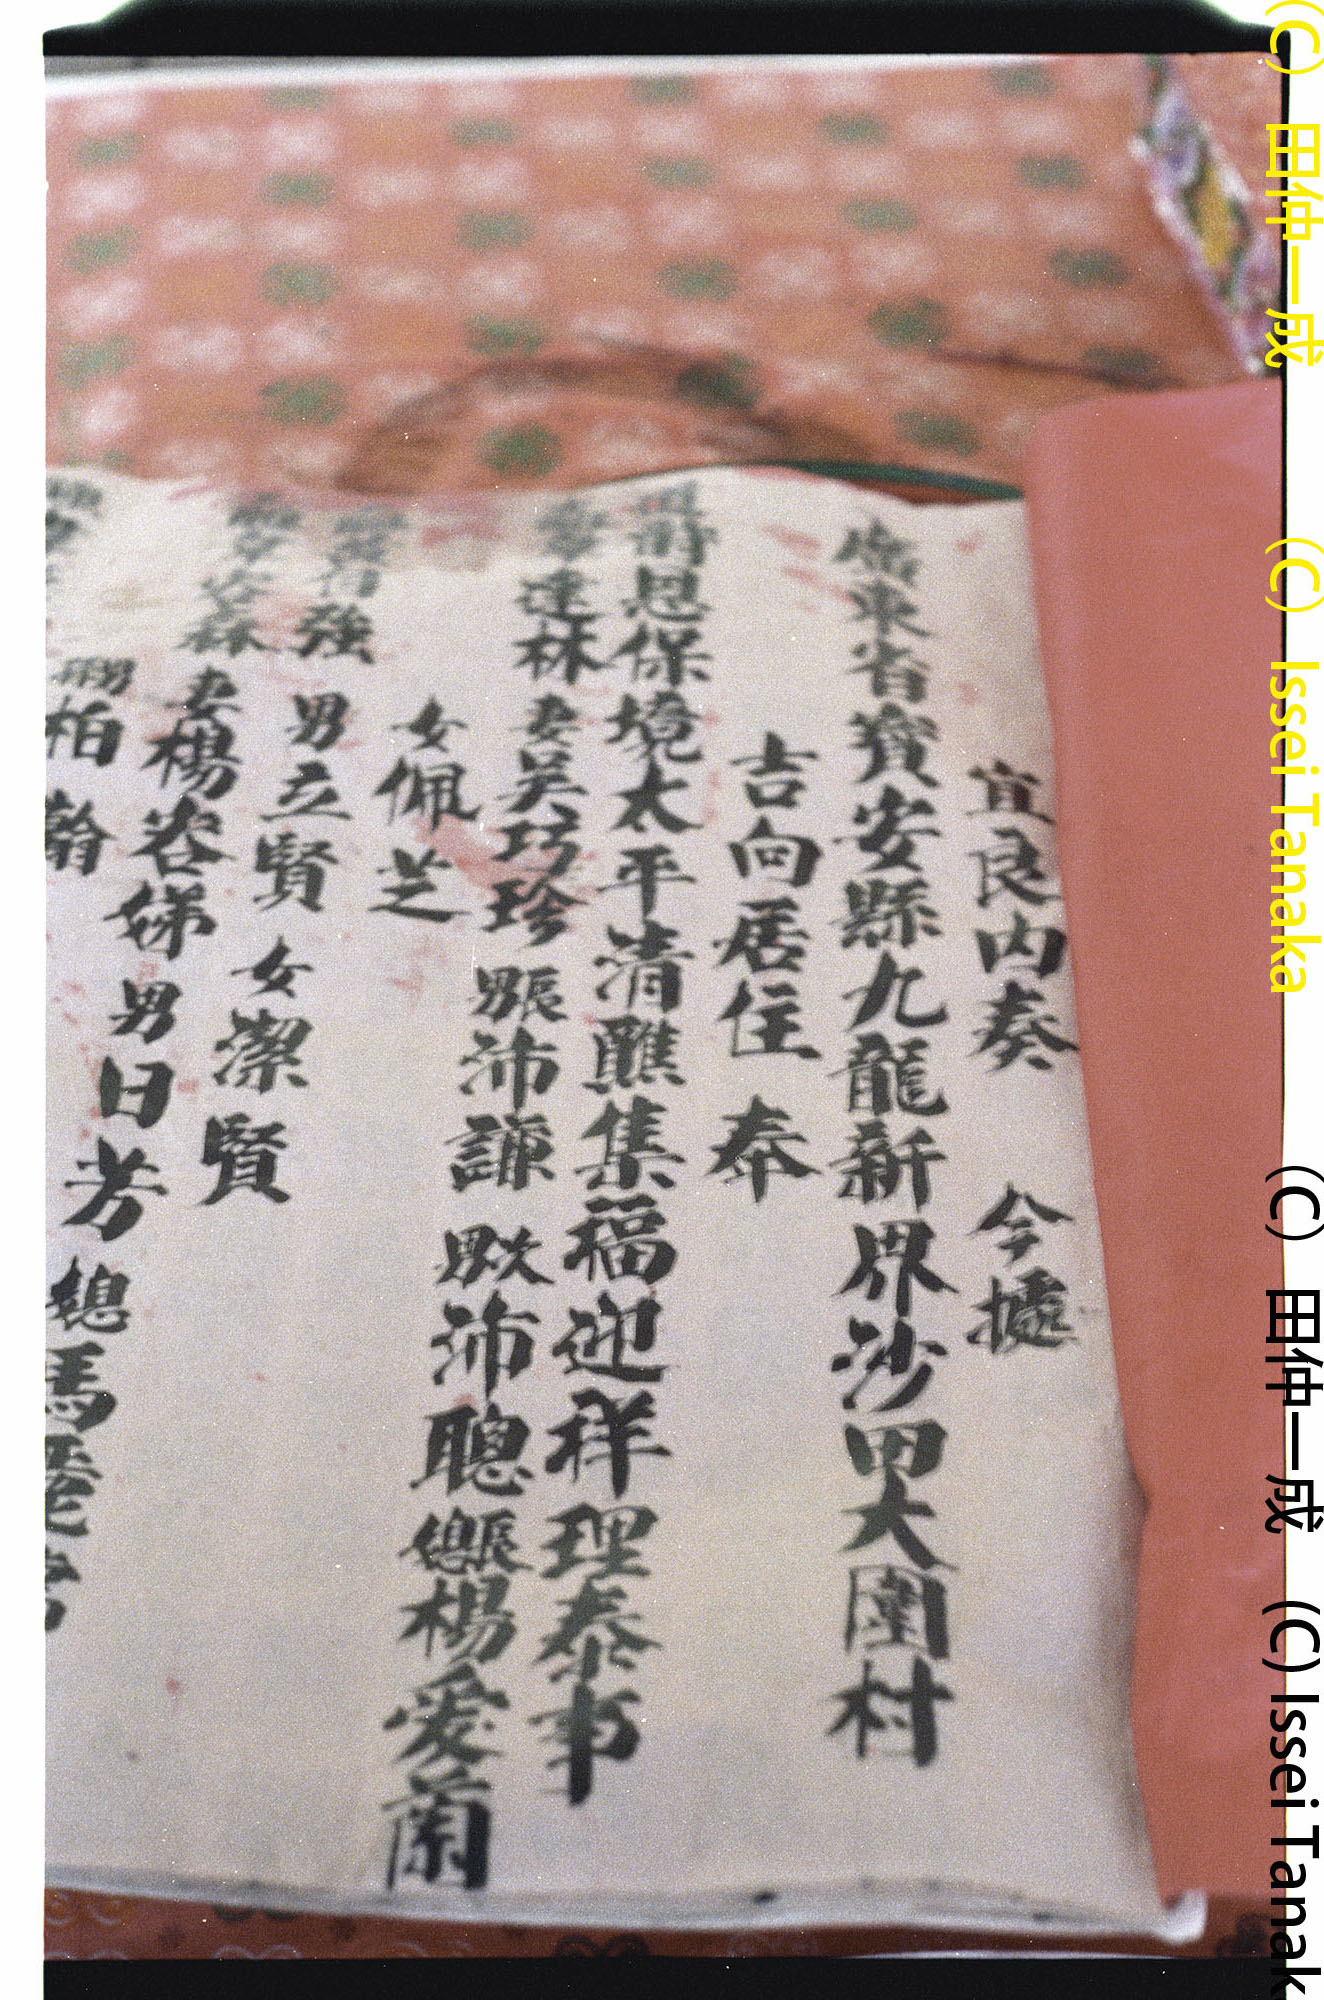 宜良內奏 今據
廣東省寶安縣九龍新界沙田大圍村
吉向居住 奉
恩保境太平清醮集福迎祥理泰事
達林 妻吳巧珍 男賬沛謙 男欤沛聰 媳賬楊愛蘭
女佩芝
強 男立賢 女潔賢
容森 妻楊容娣 男日芳 媳馬
柏翰
(C) 田仲一成 (C) Issei Tanaka
(C) 田仲一成 (C) Issei Tanak